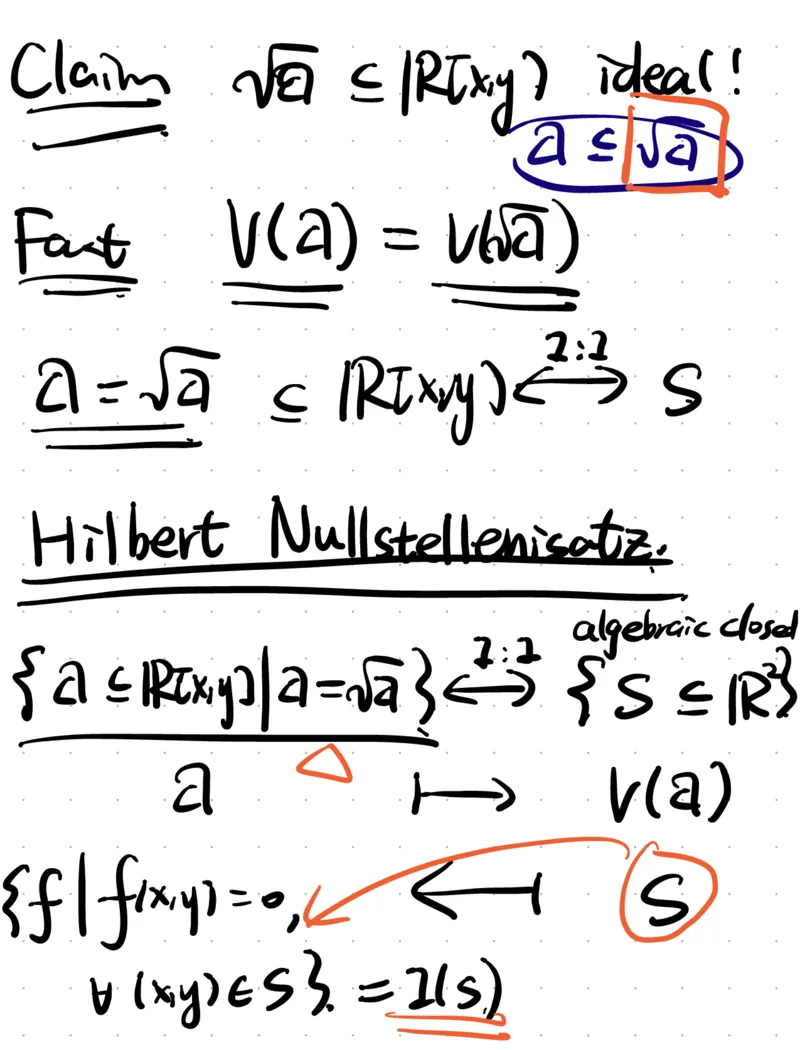 Claim √a ⊆ ℝ[x,y] ideal!
a ⊆ √a
Fact V(a) = V(√a)
a = √a ⊆ ℝ[x,y] ⟷ S
1:1
Hilbert Nullstellenisatz.
algebraic closed
{a ⊆ ℝ[x,y] | a = √a} ⟷ {S ⊆ ℝ²}
1:1
a ⟼ V(a)
{f | f(x,y) = 0, ⟻ S
∀ (x,y) ∈ S}. = I(S)